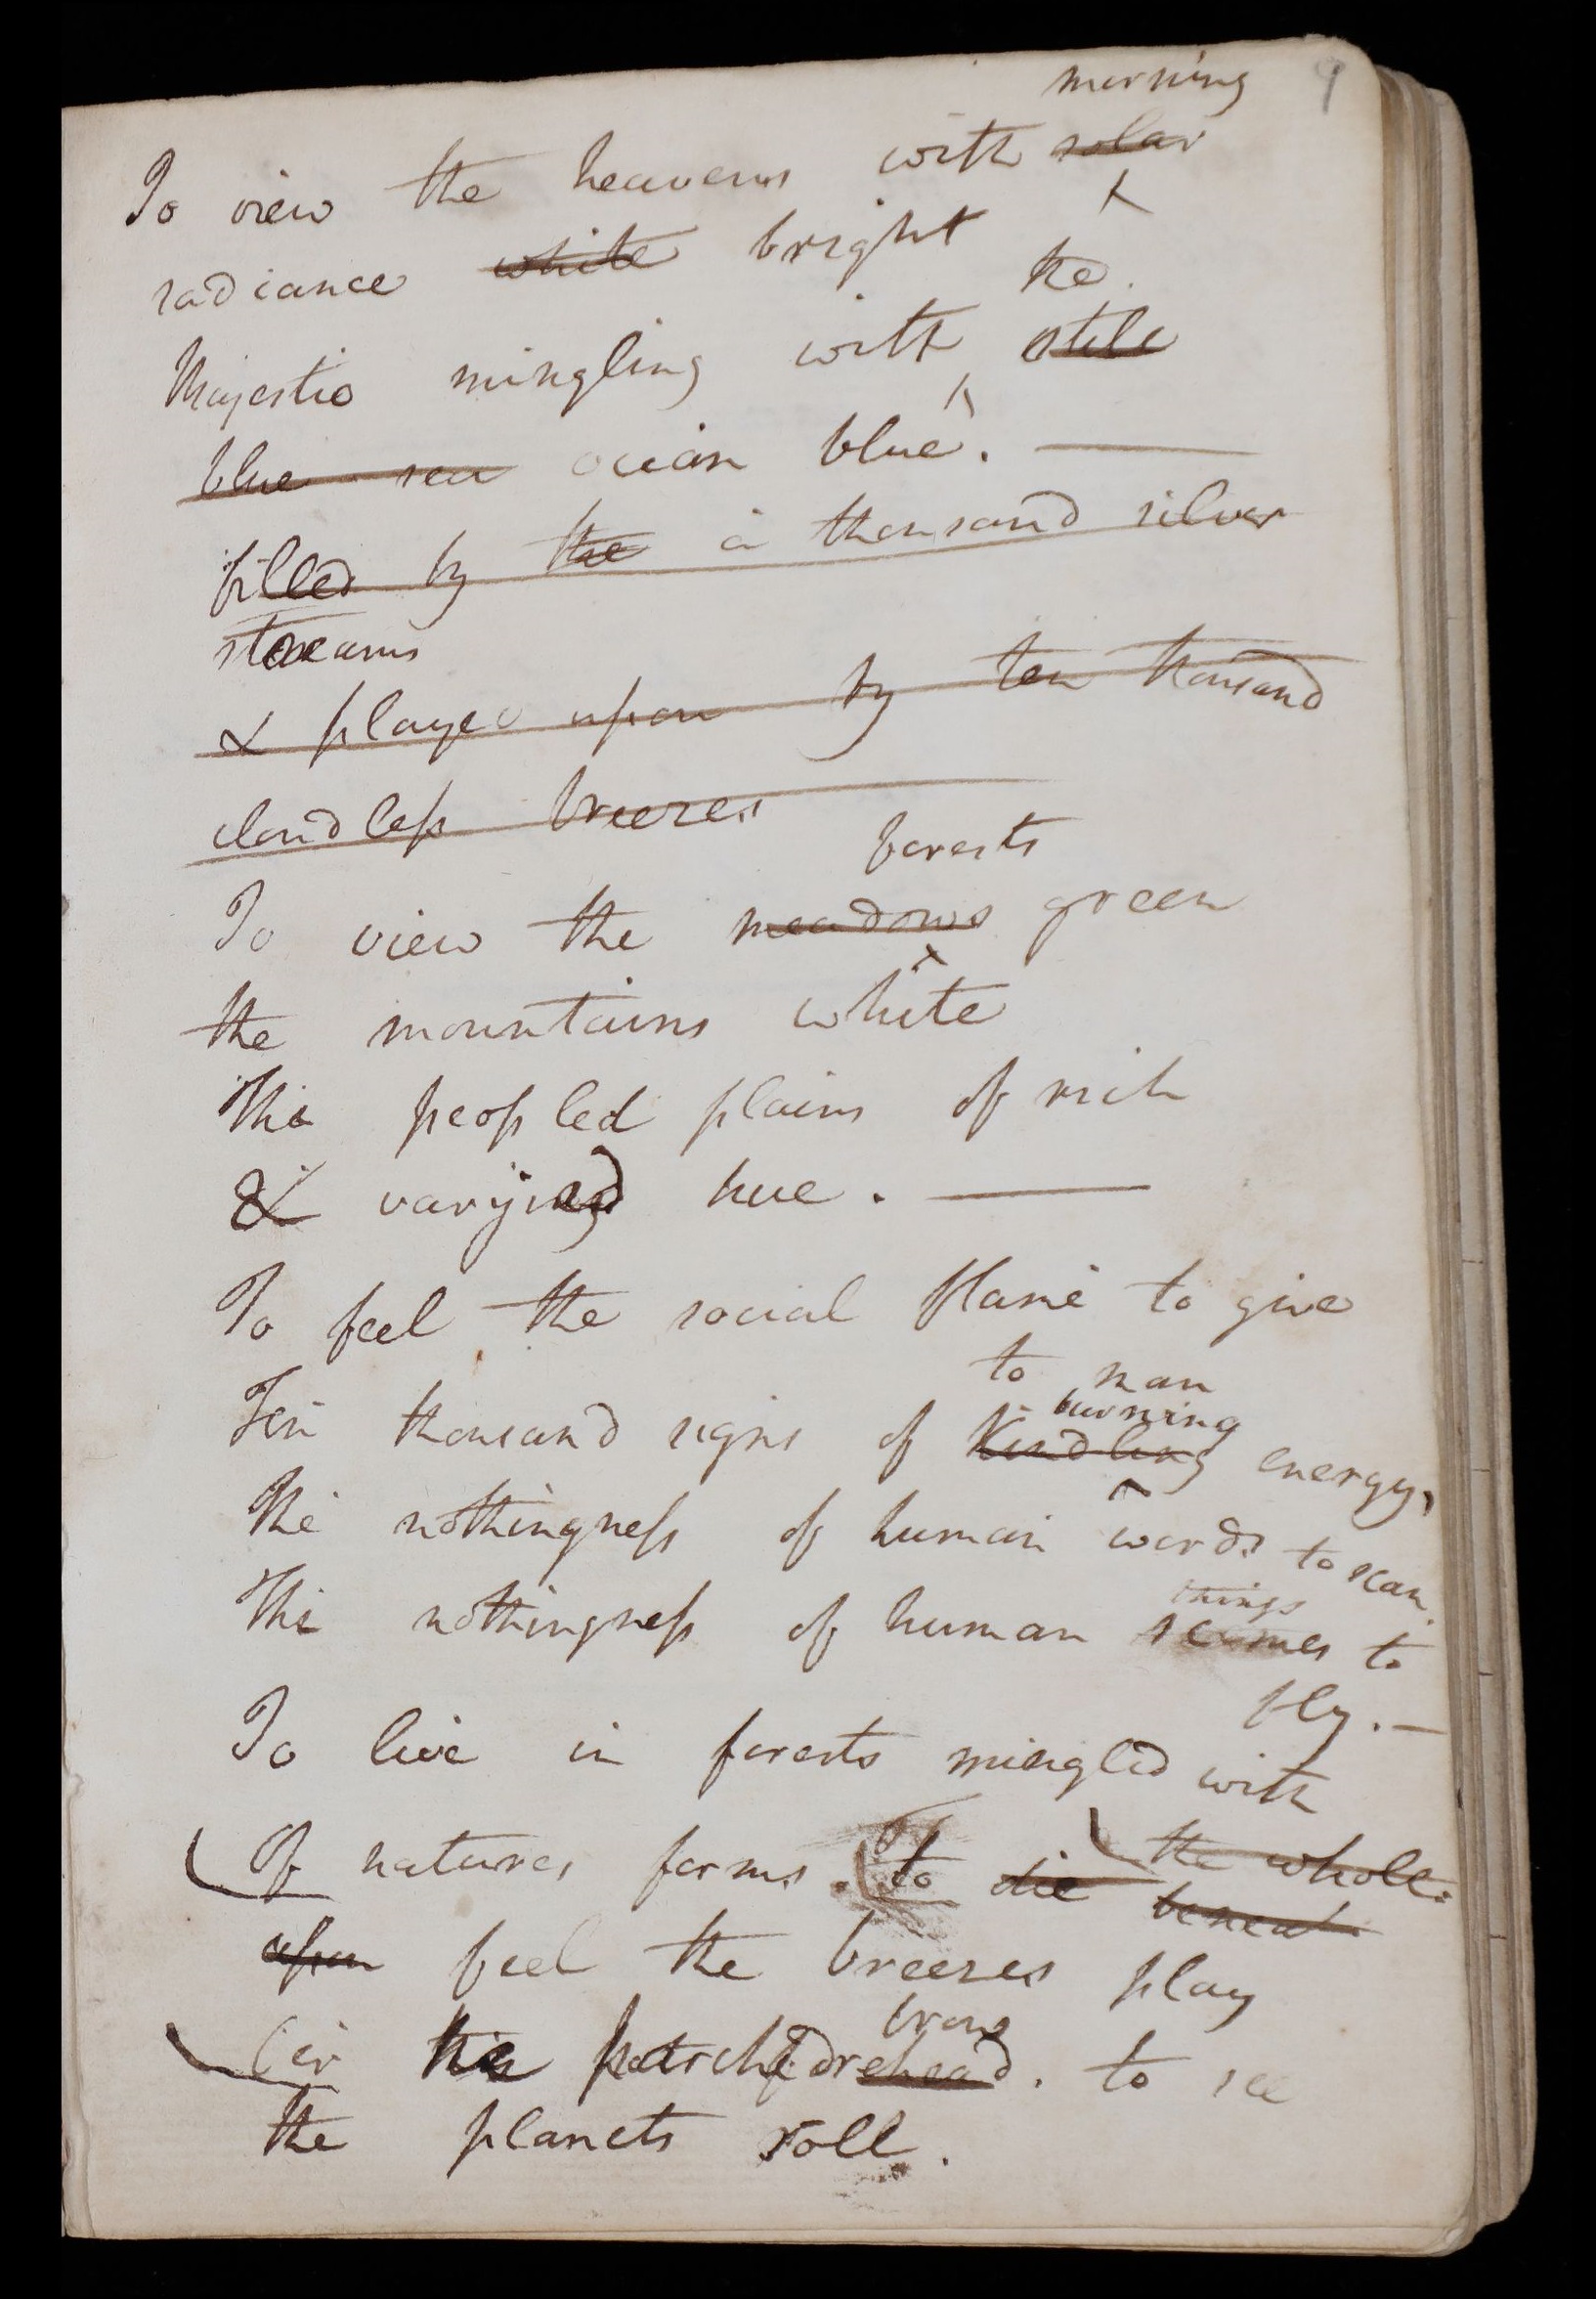 9
morning
To view the heavens with solar
radiance white bright
the
Majestic mingling with still
blue sea ocean blue. ——
filled by the a thousand silver
streams
& played upon by ten thousand
cloudless breezes
forests
To view the meadows green
the mountains white
The peopled plains of rich
& varying hue. ——
To feel the social flame to give
to man
burning
Ten thousand signs of kindling energy,
The nothingness of human words to scan.
things
The nothingness of human to
fly. —
To live in forests mingled with
the whole.
Of natures forms. to die beneat
upon feel the breezes play
brow
Oer his parched forehead. to see
the planets roll.